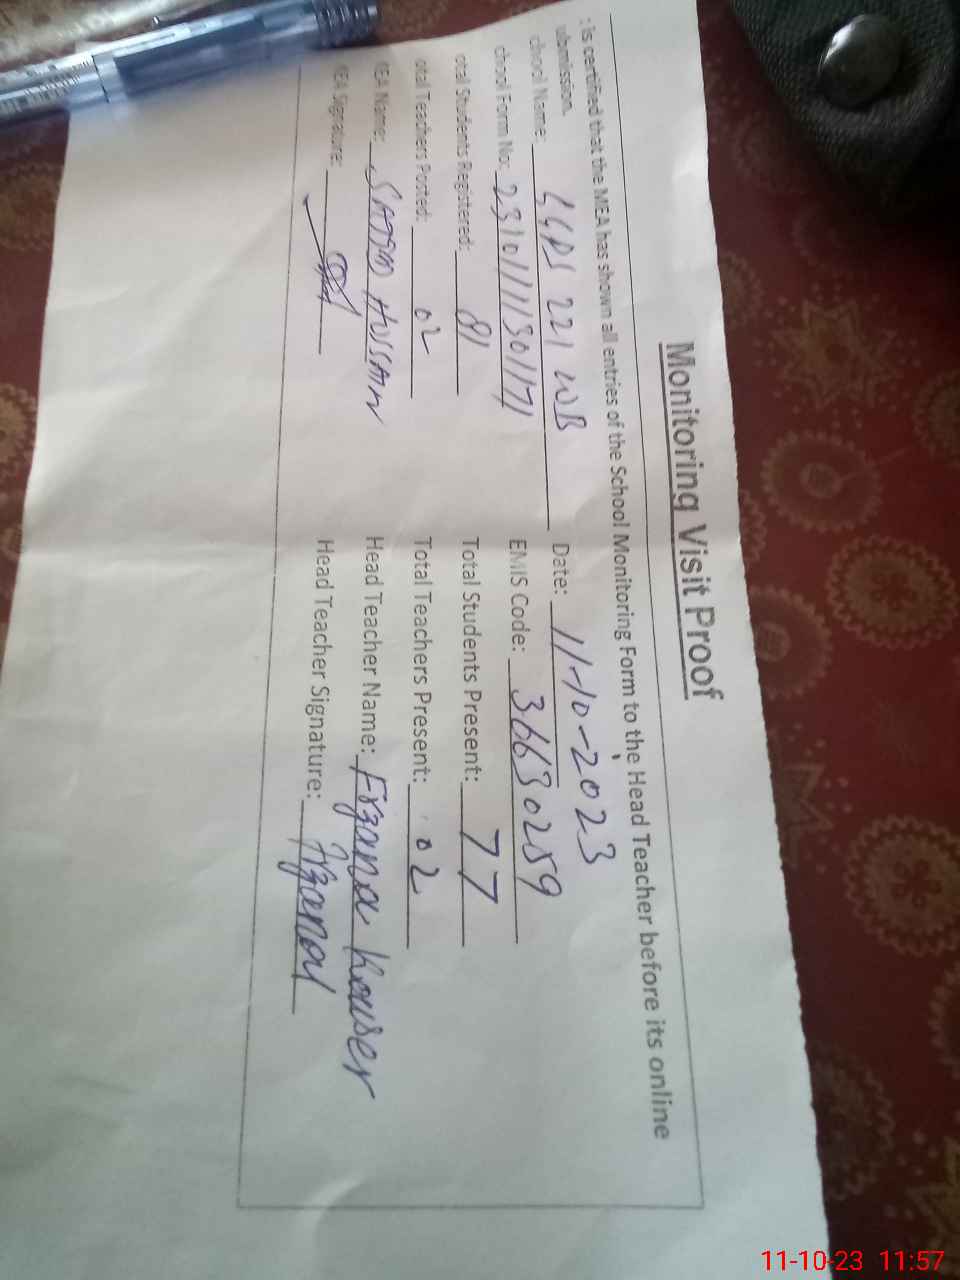 Monitoring Visit Proof
: is certified that the MEA has shown all entries of the School Monitoring Form to the Head Teacher before its online
ubmission.
chool Name: GGPS 221 WB Date: 11-10-2023
chool Form No: 23101111301171 EMIS Code: 36630259
otal Students Registered: 81 Total Students Present: 77
otal Teachers Posted: 02 Total Teachers Present: 02
EA Name: HUSSAIN Head Teacher Name: Fizana Kouser
EA Signature: Head Teacher Signature:
11-10-23 11:57